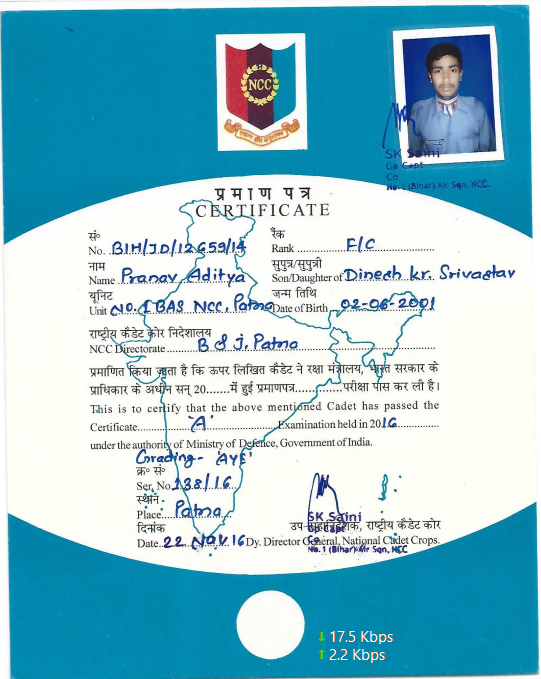 NCC
SK Saini
Gp Capt
Co
No. 1 (Bihar) Air Sqn, NCC
प्रमाण पत्र
CERTIFICATE
सं० रैंक
No. BIH/JD/12659/14 Rank F/C
नाम सुपुत्र/सुपुत्री
Name Pranav Aditya Son/Daughter of Dinesh kr. Srivastav
यूनिट जन्म तिथि
Unit No. 1 BAS NCC, Patna Date of Birth 02-06-2001
राष्ट्रीय कैडेट कोर निदेशालय
NCC Directorate B & J. Patna
प्रमाणित किया जाता है कि ऊपर लिखित कैडेट ने रक्षा मंत्रालय, भारत सरकार के
प्राधिकार के अधीन सन् 20.......में हुई प्रमाणपत्र............परीक्षा पास कर ली है।
This is to certify that the above mentioned Cadet has passed the
Certificate 'A' Examination held in 2016
under the authority of Ministry of Defence, Government of India.
Grading- 'AYE'
क्र० सं०
Ser. No. 138/16
स्थान
Place Patna
SK Saini
Gp Capt
Co
No. 1 (Bihar) Air Sqn, NCC
दिनांक उप-महानिदेशक, राष्ट्रीय कैडेट कोर
Date 22 NOV 16 Dy. Director General, National Cadet Crops.
↓ 17.5 Kbps
↑ 2.2 Kbps